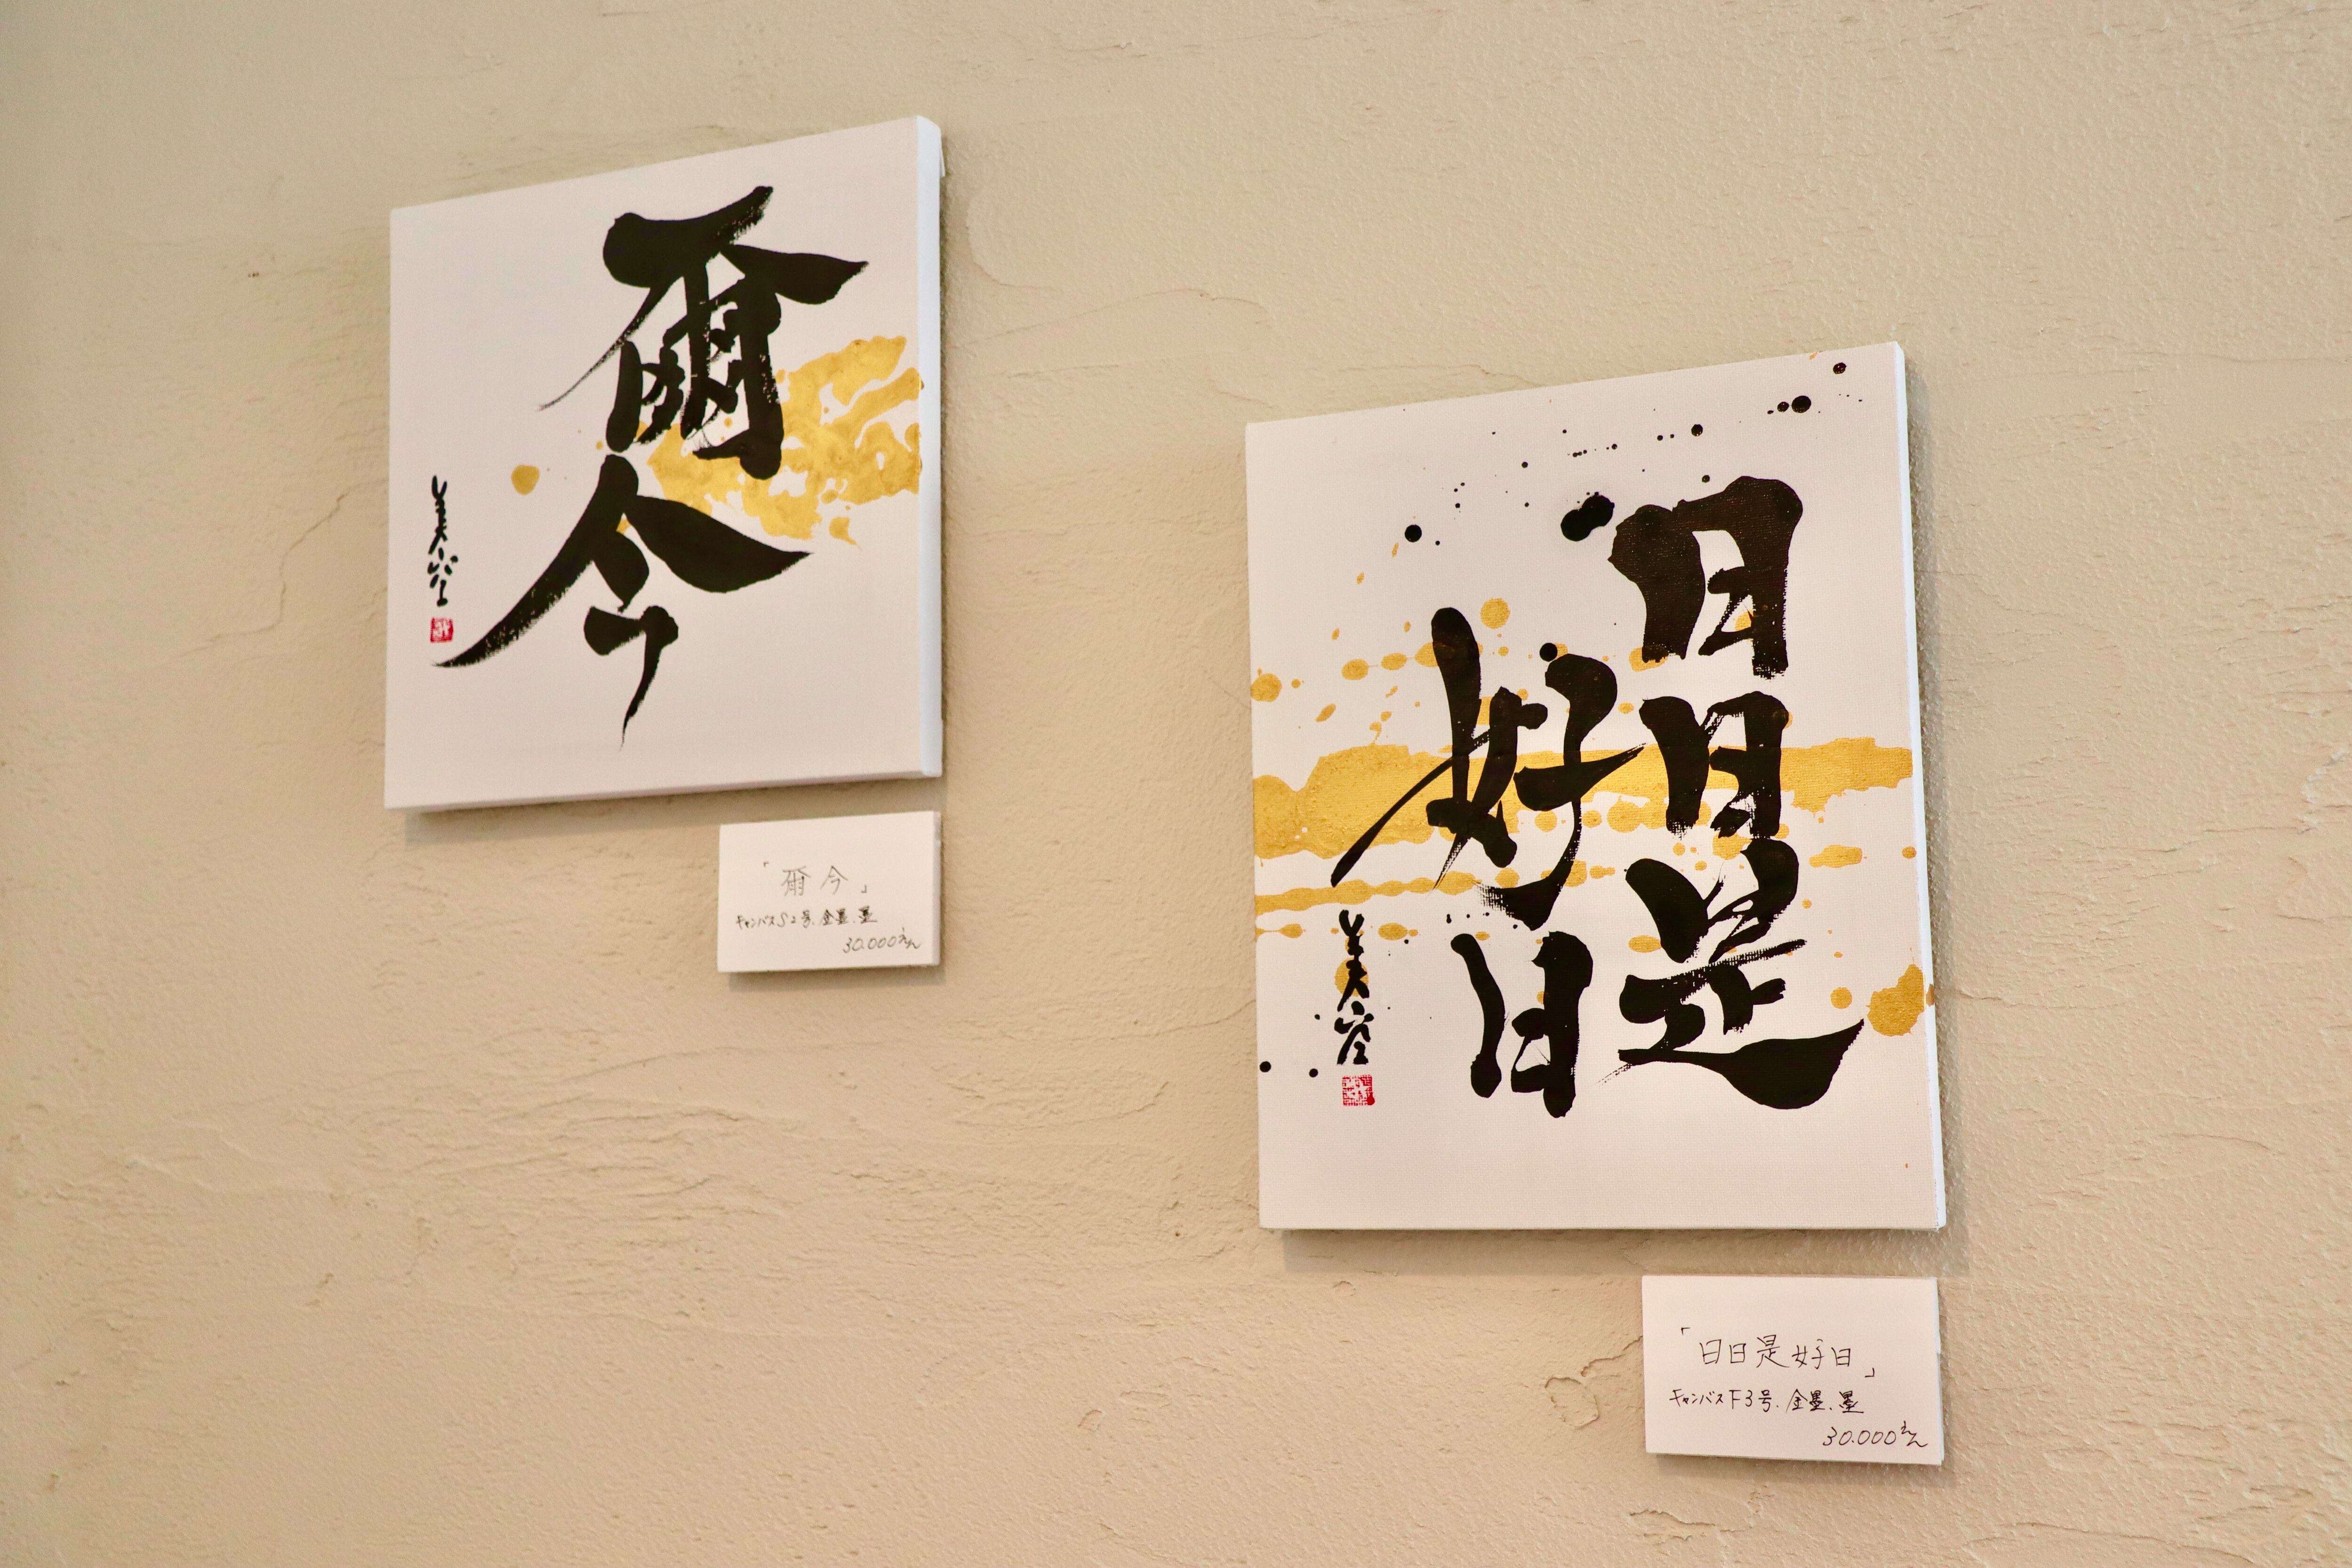 爾今
美空
「爾今」
キャンバスS2号、金墨、墨
30.000えん
日日是
好日
美空
「日日是好日」
キャンバスF3号、金墨、墨
30.000えん